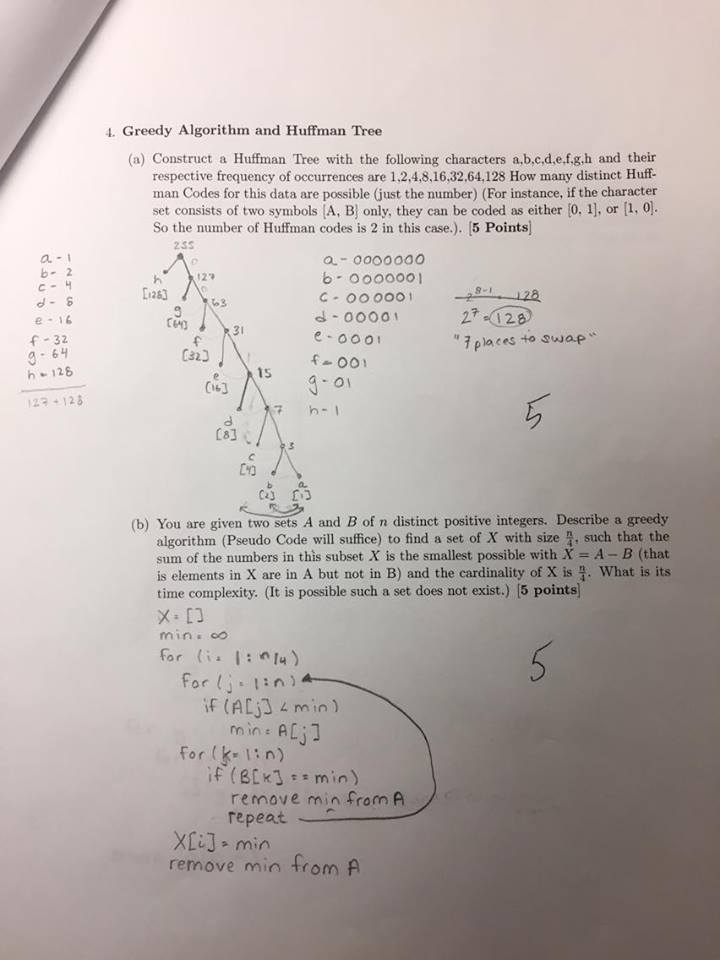 4. Greedy Algorithm and Huffman Tree
(a) Construct a Huffman Tree with the following characters a,b,c,d,e,f,g,h and their
respective frequency of occurrences are 1,2,4,8,16,32,64,128 How many distinct Huff-
man Codes for this data are possible (just the number) (For instance, if the character
set consists of two symbols [A, B] only, they can be coded as either [0, 1], or [1, 0].
So the number of Huffman codes is 2 in this case.). [5 Points]
a - 1
b - 2
c - 4
d - 8
e - 16
f - 32
g - 64
h - 128
127 + 128
255
0
h
[128]
127
g
[64]
63
f
[32]
31
e
[16]
15
d
[8]
7
c
[4]
3
b
[2]
a
[1]
a - 0000000
b - 0000001
c - 000001
d - 00001
e - 0001
f - 001
g - 01
h - 1
2^8-1 = 128
2^7 = 128
"7 places to swap"
5
(b) You are given two sets A and B of n distinct positive integers. Describe a greedy
algorithm (Pseudo Code will suffice) to find a set of X with size n/4, such that the
sum of the numbers in this subset X is the smallest possible with X = A − B (that
is elements in X are in A but not in B) and the cardinality of X is n/4. What is its
time complexity. (It is possible such a set does not exist.) [5 points]
X = []
min = ∞
for (i = 1 : n/4)
for (j = 1:n)
if (A[j] < min)
min = A[j]
for (k = 1:n)
if (B[k] == min)
remove min from A
repeat
X[i] = min
remove min from A
5